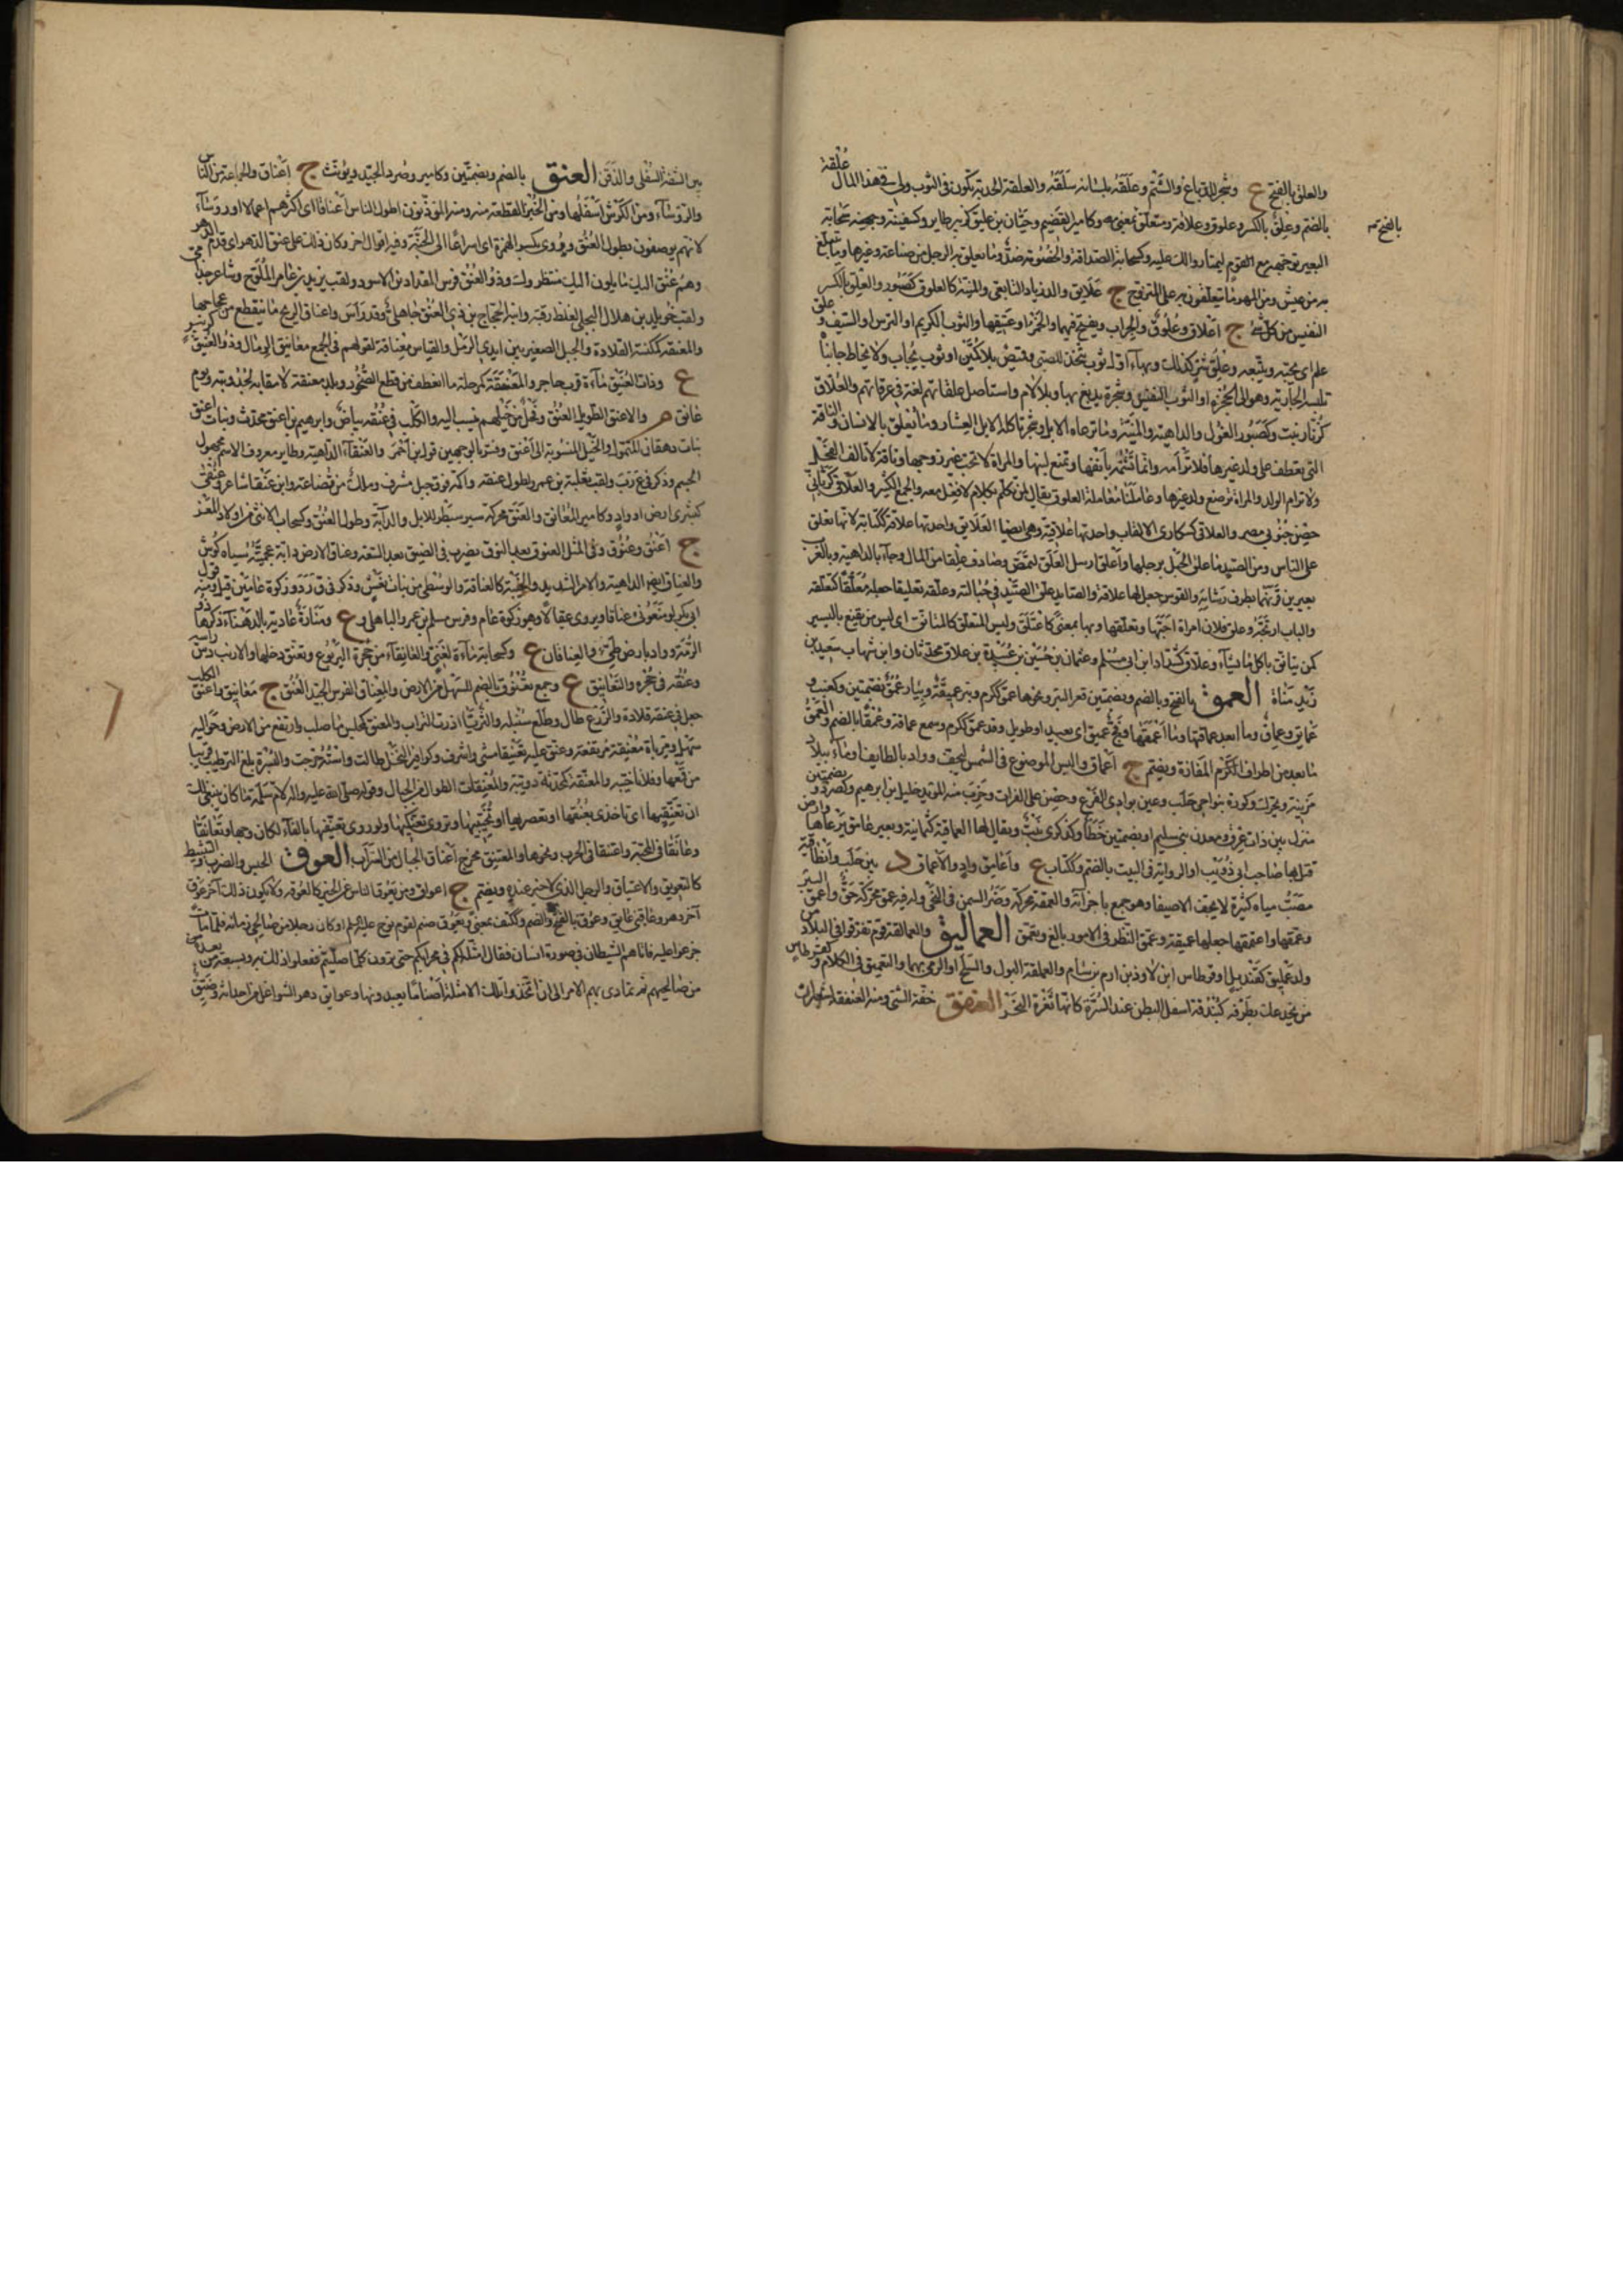 والعلق بالفتح ع وشجر للدباغ والشتم وعلقه بلسانه سلقه والعلقة الجذبة تكون في الثوب ولي في هذا المال علقة
بالضم وعلق بالكسر وعلوق وعلاقة ومتعلق بمعنى وكامير القضيم وحيان بن عليق كزبير طاير وكسفينة وجهينة سحابة
بالفتح
البعير توجهه مع القوم ليمتاروا لك عليه وكسحابة الصداقة والخصومة ضد وما تعلق به الرجل من صناعة وغيرها وما يتبلغ
به من عيش ومن المهر ما يتعلقون به على المتزوج ج علايق والد زياد التابعي والمنية كالعلوق كصبور والعلق بالكسر
النفيس من كل شيء ج اعلاق وعلوق والجراب ويفتح فيهما والخمر او عتيقها والثوب الكريم او الترس او السيف و علق
علم اي يحبه ويتبعه وعلق شر كذلك وبهاء اول ثوب يتخذ للصبي وقميص بلا كمين او ثوب يجاب ولا يخاط جانباه
تلبسه الجارية وهو الى الحجزة او الثوب النفيس وشجرة يدبغ بها وبلا لام واستاصل علقاتهم لغة في عرقاتهم والعلاق
كزنار نبت وكصبور الغول والداهية والمنية وما ترعاه الابل وشجر تاكله الابل العشار وما تعلق بالانسان والناقة
التي تعطف على ولد غيرها فلا ترأمه وانما تشمه بأنفها وتمنع لبنها والمراة لا تحب غير زوجها وناقة لا تألف الفحل
ولا ترأم الولد والمراة ترضع ولد غيرها وعاملنا معاملة العلوق يقال لمن تكلم بكلام لا فعل معه والجمع الكثير والعلاقى كربانى
حصن جنوبي مصر والعلاقى كسكارى الالقاب واحدتها علاقية وهي ايضا العلايق واحدتها علاقة ككتابة لانها تعلق
على الناس ومن الصيد ما علق الحبل برجلها واعلق ارسل العلق لتمص وصادف علقا من المال وجاء بالداهية وبالغرب
بعيرين قرنهما بطرف رشايه والقوس جعل لها علاقة والصايد علق الصيد في حبالته وعلقه تعليقا جعله معلقا كتعلقه
والباب ارتجه وعلق فلان امراة احبها وتعلقها وبها بمعنى كاعتلق وليس المتعلق كالمتانق اي ليس من يقنع باليسير
كمن يتانق ياكل ما يشاء وعلاق كشداد ابن ابي مسلم وعثمان بن حسين بن عبيدة بن علاق محدثان وابن شهاب بن سعيد بن
زيد مناة العمق بالفتح وبالضم وبضمتين قعر البير ونحوها عمق ككرم وبئر عميقة وبيار عمق بضمتين وكعنب و
عمايق وعماق وما ابعد عماقتها وما اعمقها وفج عميق اي بعيد او طويل وقد عمق ككرم وسمع عماقة وعمقا بالضم والعمق
ما بعد من اطراف المفازة ويضم ج اعماق والبسر الموضوع في الشمس ليجف وواد بالطايف وماء ببلاد
مزينة ويحرك وكورة بنواحي حلب وعين بوادي الفرع وحصن على الفرات وخرب منه المؤيد خليل بن ابرهيم وكصرد و بضمتين
منزل بين ذات عرق ومعدن بني سليم او بضمتين خطأ وكذكرى نبت ويقال لها العماقية كثمانية وبعير عامق يرعاها وارض
قتل بها صاحب ابي ذؤيب او الرواية في البيت بالضم وككتاب ع واعامق واد والاعماق د بين حلب وانطاكية
مصب مياه كثيرة لا يجف الا صيفا وهو جمع باجزائه والعمقة محركة وضر السمن في النحي وله فيه عمق محركة حق واعمق البئر
وعمقها واعتمقها جعلها عميقة وعمق النظر في الامور بالغ وتعمق العماليق والعمالقة قوم تفرقوا في البلاد من
ولد عمليق كقنديل او قرطاس ابن لاوذ بن ارم بن سام والعملقة البول والسلح او الرمي بهما والتعميق في الكلام وكقرطاس
من يخدعك بظرفه كبندقة اسفل البطن عند السرة كانها ثغرة النحر العنفق خفة الشئ ومنه العنفقة لشعيرات
بين الشفة السفلى والذقن العنق بالضم وبضمتين وكامير وصرد الجيد ويؤنث ج اعناق والجماعة من الناس
والرؤساء ومن الكرش اسفلها ومن الخبز القطعة منه ومنه المؤذنون اطول الناس اعناقا اي اكثرهم اعمالا او رؤساء
لانهم يوصفون بطول العنق وروي بكسر الهمزة اي اسراعا الى الجنة وفيه اقوال اخر وكان ذلك على عنق الدهر اي قديم الدهر
وهم عنق اليك مايلون اليك منتظروك وذو العنق فرس المقداد بن الاسود ولقب يزيد بن عامر الملوح وشاعر جذامي
ولقب خويلد بن هلال البجلي لغلظ رقبته وابنه الحجاج بن ذي العنق جاهلي وقد راس واعناق الريح ما سطع من عجاجها
والمعنقة كمكنسة القلادة والحبل الصغير بين ايدي الرمل والقياس معناقة لقولهم في الجمع معانيق الرمال وذو العنيق كزبير
ع وذات العنيق ماءة قرب حاجر والمعنقة كمرحلة ما انعطف من قطع الصخور وبلد معنقة لا مقام به لجدوبته ويوم
عانق م والاعنق الطويل العنق وفحل من خيلهم ينسب اليه والكلب في عنقه بياض وابرهيم بن اعنق محدث وبنات اعنق
بنات دهقان المتمول والخيل المنسوبة الى اعنق وفسر بالوجهين قول ابن احمر والعنقاء الداهية وطاير معروف الاسم مجهول
الجسم وذكر في غ ر ب ولقب ثعلبة بن عمرو لطول عنقه واكمة فوق جبل مشرف وملك من قضاعة وابن عنقا شاعر وعنقى
كبشرى ارض او واد وكامير المعانق والعنق محركة سير مسبطر للابل والدابة وطول العنق وكسحاب الانثى من اولاد المعز
ج اعنق وعنوق وفي المثل العنوق بعد النوق يضرب في الضيق بعد السعة وعناق الارض دابة عجميته سياه كوش
والعناق ايضا الداهية والامر الشديد والخيبة كالعناقة والوسطى من بنات نعش وذكر في ق و د وزكوة عامين قيل ومنه قول
ابي بكر لو منعوني عناقا ويروى عقالا وهو زكوة عام وفرس مسلم بن عمرو الباهلي و ع ومنارة عادية بالدهناء ذكرها ذو
الرمة وواد بارض طيئ والعناقان ع وكسحابة ماءة لغني والعانقاء من جحرة اليربوع وتعنق دخلها والارنب دس راسه
وعنقه في جحره والتعانيق ع وجمع تعنوق بالضم للسهل من الارض والمعناق الفرس الجيد العنق ج معانيق واعنق الكلب
جعل في عنقه قلادة والزرع طال وطلع سنبله والثريا اذرت التراب والمعنق كمحسن ما صلب وارتفع من الارض وحواليه
سهل ومرباة معنقة مرتفعة وعنق عليه تعنيقا مشى واشرف وكوافير النخل طالت واستخرجت والبسرة بلغ الترطيب قريبا
من قمعها وفلانا خيبه والمعنقة كمحدثة دويبة والمعنقات الطوال من الجبال وقوله صلى الله عليه واله لام سلمة ما كان ينبغي لك
ان تعنقيها اي تاخذي بعنقها او تعصريها او تخيبيها وتروى تعنكيها ولو روي تعنفيها بالفاء لكان وجها وتعانقا
وعانقا في المحبة واعتنقا في الحرب ونحوها والمعتنق مخرج اعناق الجبال من السراب العوق الحبس والصرف والتثبيط
كالتعويق والاعتياق والرجل الذي لا خير عنده ويضم ج اعواق ومن يعوق الناس عن الخير كالعوقة ولا يكون ذلك آخر عوق
آخر دهر وعاقني عايق وعوق بالفتح والضم وككتف بمعنى ويعوق صنم لقوم نوح عليه السلم او كان رجلا من صالحي زمانه فلما مات
جزعوا عليه فاتاهم الشيطان في صورة انسان فقال امثله لكم في محرابكم حتى ترون كلما صليتم ففعلوا ذلك به وبسبعة من بعده
من صالحيهم ثم تمادى بهم الامر الى ان اتخذوا تلك الامثلة اصناما يعبدونها وعوايق دهر الشواغل من احداثه وضيق